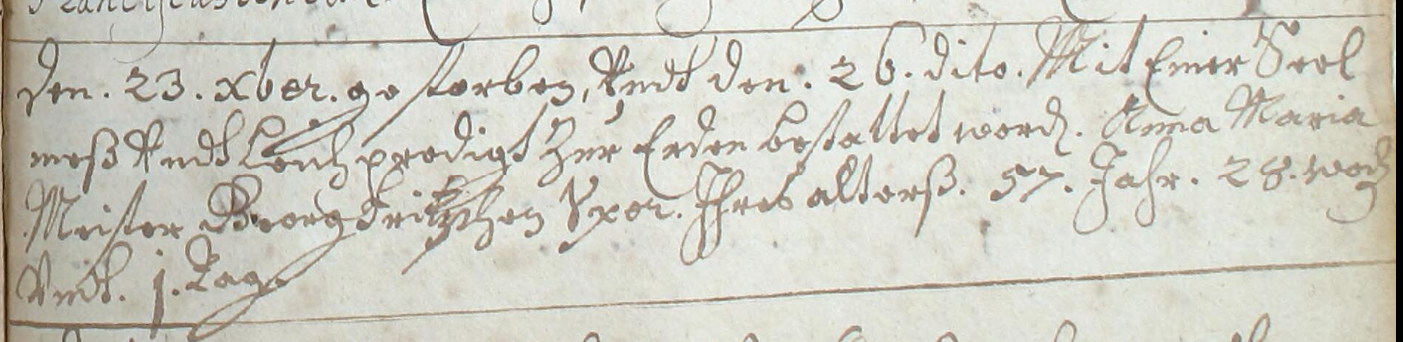 den. 23. xber. gestorben, Vndt den. 26. dito. Mit Einer Seel
meß Vndt Leich predigt Zur Erden bestattet word. Anna Maria
Meister Georg Fritzschen Vxor. Ihres alterß. 57. Jahr. 28. woch
Vndt. 1. Tag